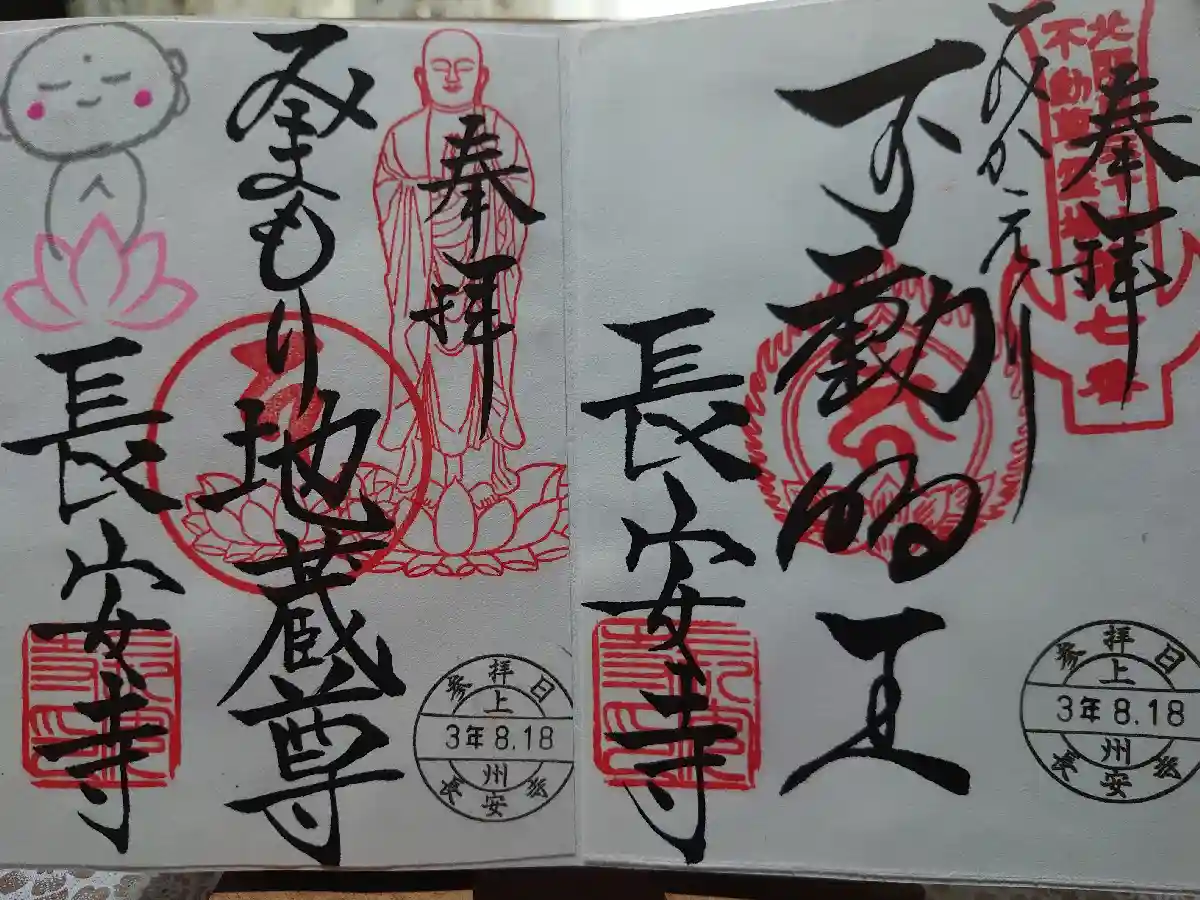 奉拝
みかえり
不動明王
長安寺
不動尊霊場
七番
参拝日
上
3年8.18
州
長安寺
奉拝
みまもり地蔵尊
長安寺
参拝日
上
3年8.18
州
長安寺